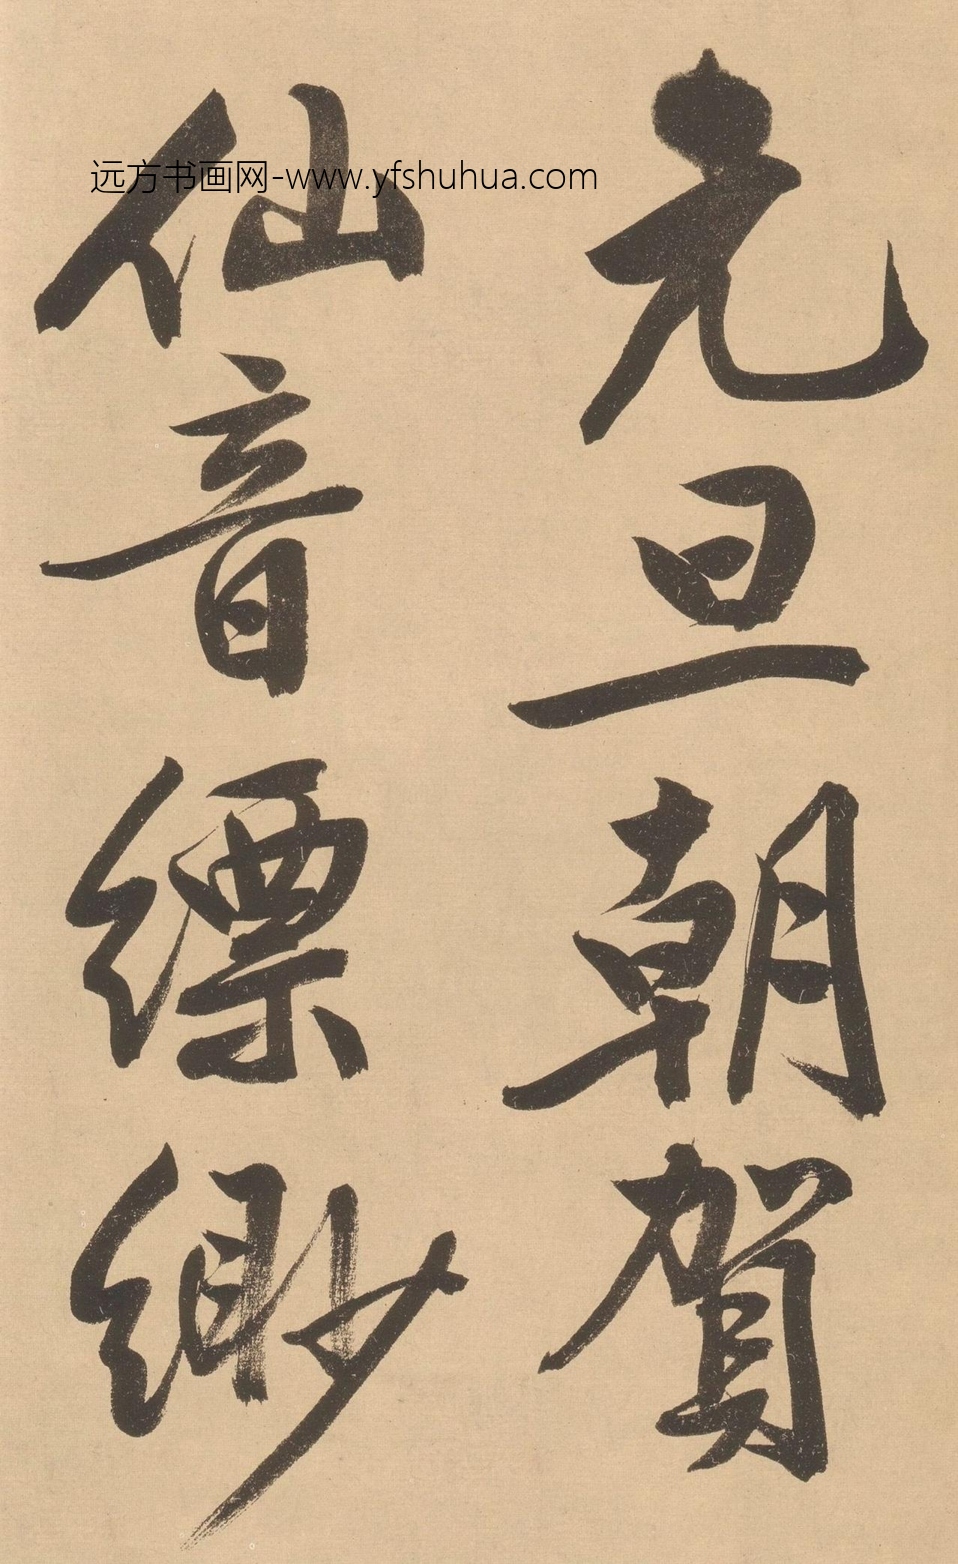 元旦朝賀
仙音縹緲
远方书画网-www.yfshuhua.com